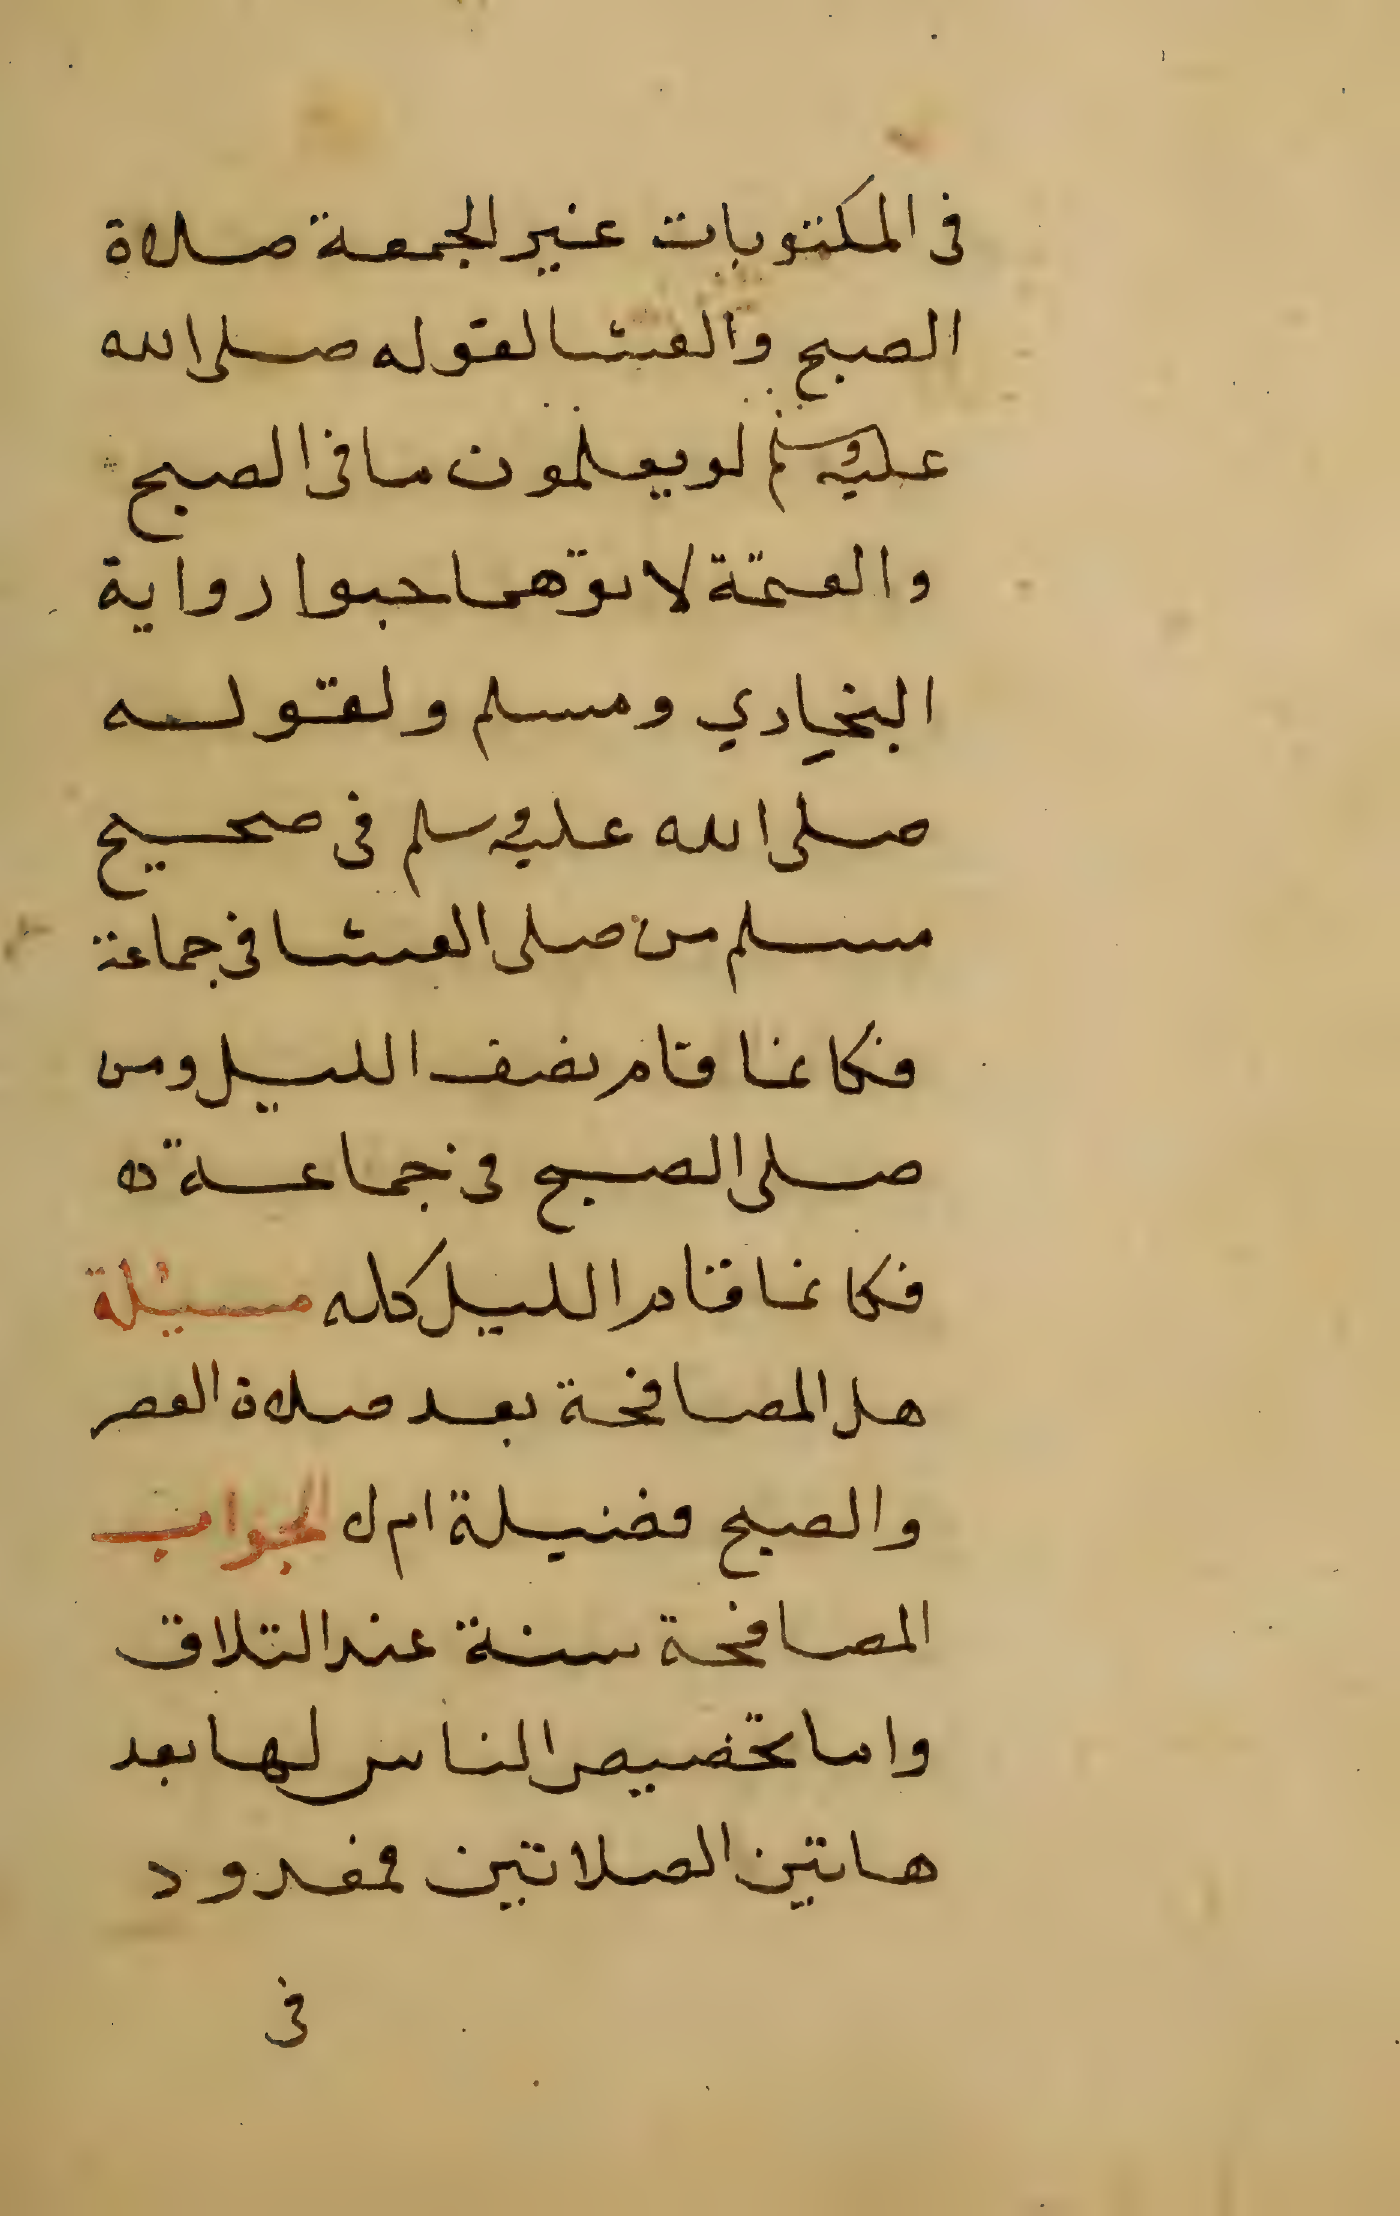 فى المكتوبات غير الجمعة صلاة
الصبح والعشا لقوله صلى الله
عليه وسلم لو يعلمون ما فى الصبح
والعتمة لاتوهما حبوا رواية
البخاري ومسلم ولقوله
صلى الله عليه وسلم فى صحيح
مسلم من صلى العشا فى جماعة
فكانما قام نصف الليل ومن
صلى الصبح فى جماعة
فكانما قام الليل كله مسئلة
هل المصافحة بعد صلاة العصر
والصبح فضيلة ام لا الجواب
المصافحة سنة عند التلاق
واما تخصيص الناس لها بعد
هاتين الصلاتين فمعدود
فى